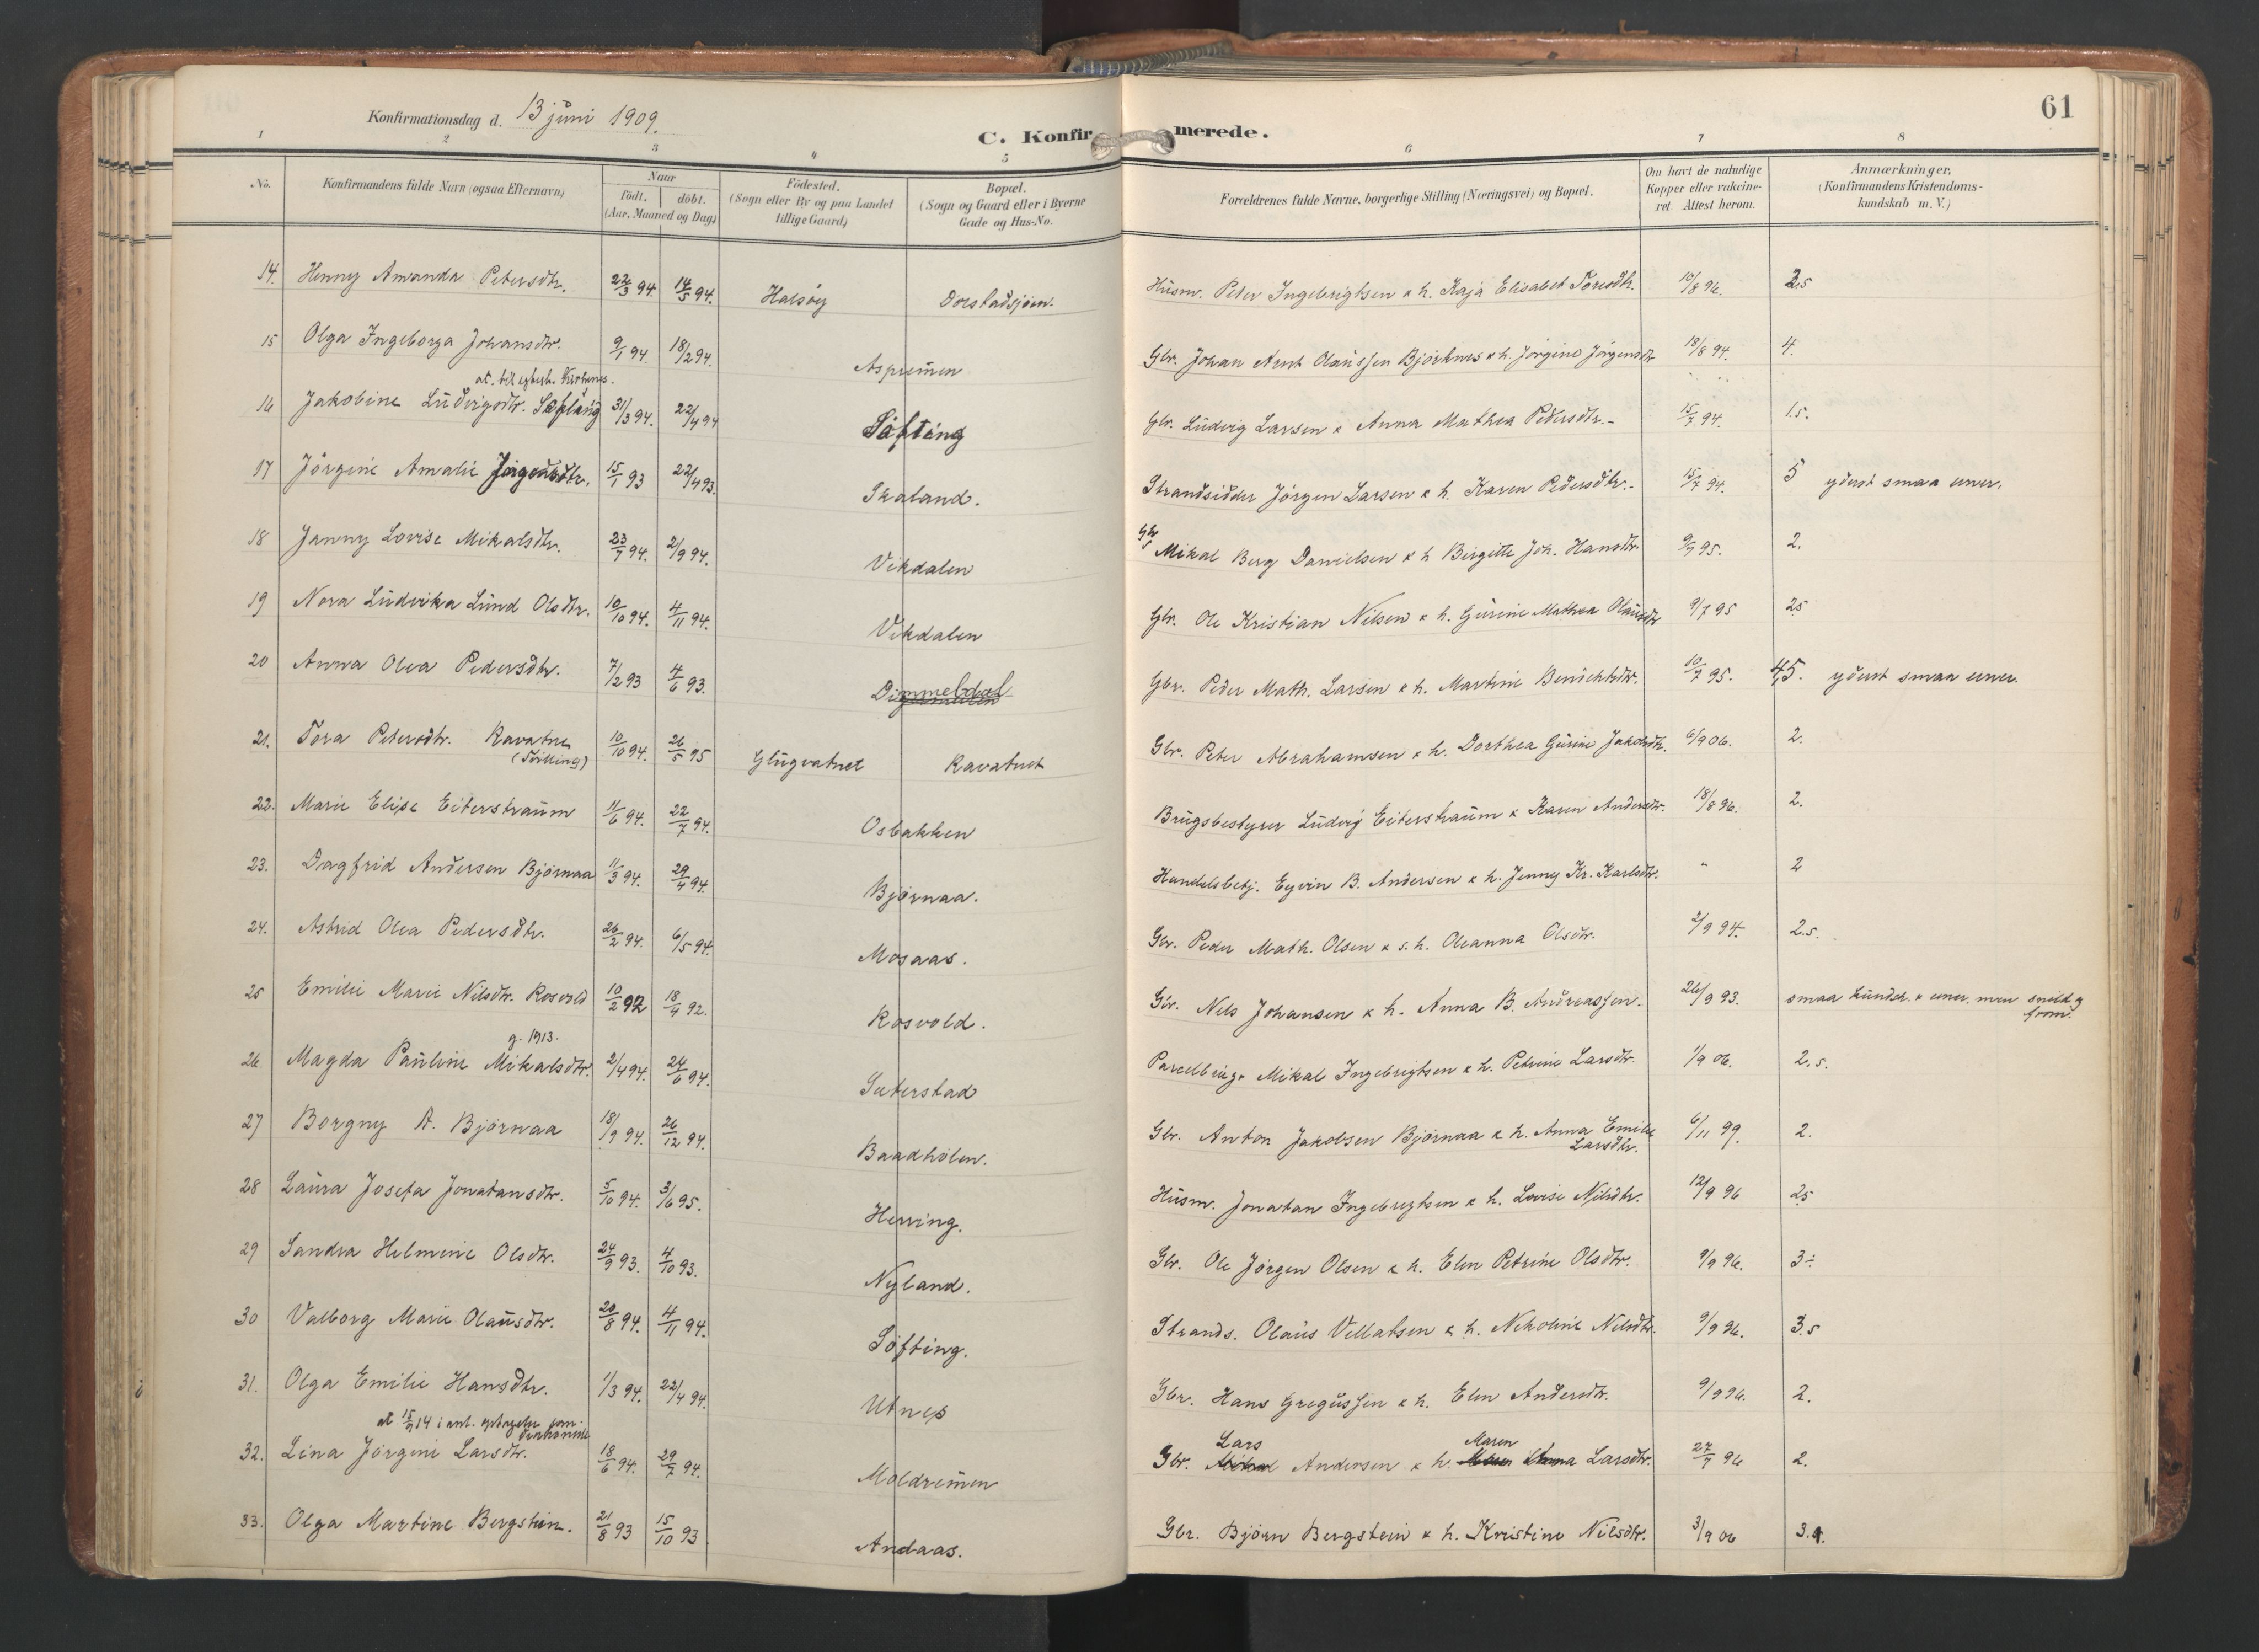 61
Konfirmationsdag d. 13 juni 1909.
C. Konfirmerede.
1 2 3 4 5 6 7 8
No. Konfirmandens fulde Navn (ogsaa Efternavn) Naar født. døbt. (Aar, Maaned og Dag) Fødested. (Sogn eller By og paa Landet tillige Gaard) Bopæl. (Sogn og Gaard eller i Byerne Gade og Hus-No. Forældrenes fulde Navne, borgerlige Stilling (Næringsvei) og Bopæl. Om havt de naturlige Kopper eller vakcineret. Attest herom. Anmærkninger, (Konfirmandens Kristendomskundskab m. V.)
14. Henny Amanda Petersdtr. 22/3 94. 14/5 94. Halsøy Dorstadsjøen. Husm. Peter Ingebrigtsen & h. Kaja Elisabet Toresdtr. 10/8 96. 2.5
15 Olga Ingeborga Johansdtr. 9/1 94. 18/2 94. Aspremen Gbr. Johan Arnt Olaussen Bjørknes & h. Jørgine Jørgensdtr 18/8 94. 4.
at. til
16 Jakobine Ludvigsdtr. Søfting 31/3 94. 22/4 94 Søfting Gbr. Ludvig Larsen & Anna Mathea Pedersdtr. 15/7 94. 1.5.
17 Jørgine Amalie Jørgensdtr. 15/1 93 22/4 93. Skaland. Strandsidder Jørgen Larsen & h. Karen Pedersdtr. 15/7 94. 5 yderst smaa evner.
18 Janny Lovise Mikalsdtr. 23/7 94. 2/9 94. Vikdalen Gbr Mikal Berg Danielsen & h Birgitte Joh. Hansdtr. 9/7 95. 2.
19 Nora Ludvika Lund Olsdtr. 10/10 94. 4/11 94. Vikdalen Gbr. Ole Kristian Nilsen & h. Gurine Mathea Olausdtr 9/7 95 2.5
20 Anna Olea Pedersdtr. 7/2 93 4/6 93. Dimmeldal Gbr. Peder Math. Larsen & h. Martine Benediktsdtr. 10/7 95. 4,5. yderst smaa evner.
21. Tora Petersdtr. Ravatne 10/10 94. 26/5 95 Glugvatnet Ravatnet Gbr. Peter Abrahamsen & h. Dorthea Gurine Jakobsdtr. 6/9 06. 2.
(Tvilling)
22. Marie Elise Eiterstraum 11/6 94. 22/7 94. Osbakken Brugsbestyrer Ludvig Eiterstraum & Karen Andersdtr. 18/8 96. 2.
23. Dagfrid Andersen Bjørnaa 11/3 94. 29/4 94. Bjørnaa. Handelsbetj. Eyvin B. Andersen & h. Jenny Kr. Karlsdtr. " 2
24. Astrid Olea Pedersdtr. 26/2 94. 6/5 94. Mosaas. Gbr. Peder Math. Olsen & s. h. Oleanna Olsdtr. 2/9 94. 2.5.
25 Emilie Marie Nilsdtr. Rosvold 10/2 92 18/4 92. Rosvold. Gbr. Nils Johansen & h. Anna B. Andreassen. 26/9 93. smaa kundsk. & evner. men snild &
from.
g. 1913.
26 Magda Pauline Mikalsdtr. 2/4 94. 24/6 94. Sæterstad Parcelbrug. Mikal Ingebrigtsen & h. Petrine Larsdtr. 1/9 06. 2.5.
27 Borgny A. Bjørnaa 18/9 94. 26/12 94. Baadhølen. Gbr. Anton Jakobsen Bjørnaa & h. Anna Emilie 6/11 99. 2.
Larsdtr.
28 Laura Josefa Jonatansdtr. 5/10 94. 3/6 95. Herring. Husm. Jonatan Ingebrigtsen & h. Lovise Nilsdtr. 12/9 96 2.5
29 Sandra Helmine Olsdtr. 24/9 93. 4/10 93. Nyland. Gbr. Ole Jørgen Olsen & h. Elen Petrine Olsdtr. 9/9 96. 3÷
30 Valborg Marie Olausdtr. 20/8 94. 4/11 94. Søfting. Strands. Olaus Vellatsen & h. Nikoline Nilsdtr. 9/9 96. 3.5
31. Olga Emilie Hansdtr. 1/3 94. 22/4 94. Utnes Gbr. Hans Gregussen & h. Elen Andersdtr. 9/9 96. 2.
Lars Maren
32. Lina Jørgine Larsdtr. 18/6 94. 29/7 94. Moldremen Gbr. Andersen & h. Anna Larsdtr. 27/7 96 2.
33. Olga Martine Bergstein. 21/8 93 15/10 93. Andaas. Gbr. Bjørn Bergstein & h. Kristine Nilsdtr. 3/9 06 3.